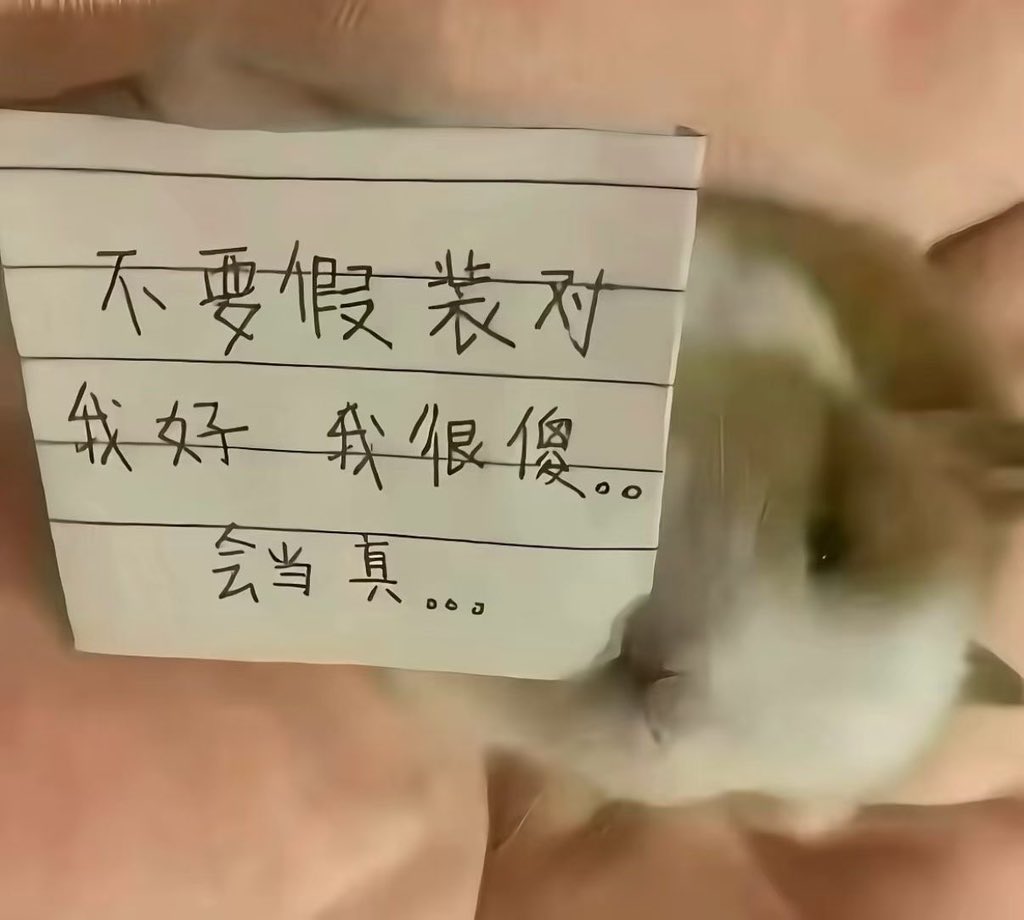 不要假装对
我好 我很傻..
会当真...